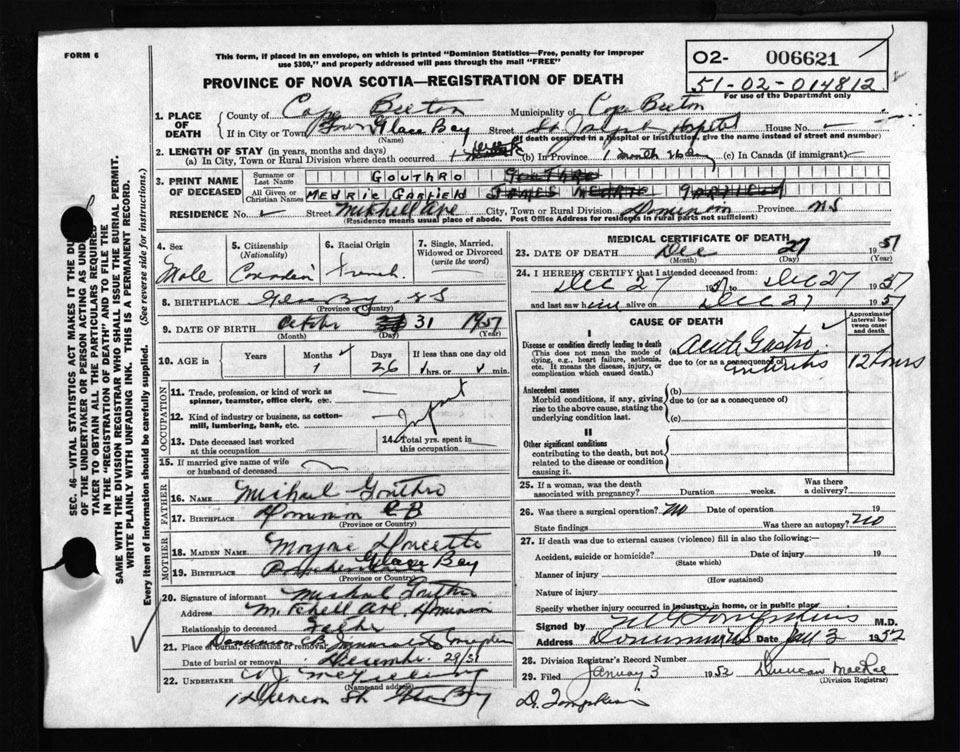 FORM 6
This form, if placed in an envelope, on which is printed "Dominion Statistics—Free, penalty for improper
use $300," and properly addressed will pass through the mail "FREE"
PROVINCE OF NOVA SCOTIA—REGISTRATION OF DEATH
02- 006621
51-02-014812
For use of the Department only
1. PLACE OF DEATH
County of Cape Breton Municipality of Cape Breton
If in City or Town Town Glace Bay Street St Joseph Hospital House No.
(Name) (If death occurred in a hospital or institution, give the name instead of street and number)
2. LENGTH OF STAY (in years, months and days)
(a) In City, Town or Rural Division where death occurred 1 (b) In Province 1 month 26 day (c) In Canada (if immigrant)
3. PRINT NAME OF DECEASED
Surname or Last Name GOUTHRO GOUTHRO
All Given or Christian Names MEDRIC GARFIELD JAMES MEDRIC GARFIELD
RESIDENCE No. Street Mitchell Ave City, Town or Rural Division Dominion Province NS
(Residence means usual place of abode. Post Office Address for residents in rural parts not sufficient)
4. Sex Male
5. Citizenship (Nationality) Canadian
6. Racial Origin French
7. Single, Married, Widowed or Divorced (write the word)
8. BIRTHPLACE Glace Bay NS
(Province or Country)
9. DATE OF BIRTH October 31 1951
(Month) (Day) (Year)
10. AGE in Years Months 1 Days 26 If less than one day old hrs. or min.
OCCUPATION
11. Trade, profession, or kind of work as spinner, teamster, office clerk, etc.
12. Kind of industry or business, as cotton-mill, lumbering, bank, etc.
Infant
13. Date deceased last worked at this occupation
14. Total yrs. spent in this occupation
15. If married give name of wife or husband of deceased
FATHER
16. NAME Michael Gouthro
17. BIRTHPLACE Dominion CB
(Province or Country)
MOTHER
18. MAIDEN NAME Doucette
19. BIRTHPLACE Glace Bay
(Province or Country)
20. Signature of informant Michael Gouthro
Address Mitchell Ave Dominion
Relationship to deceased Father
21. Place of burial, cremation or removal Dominion CB Immaculate Conception
Date of burial or removal December 29/51
22. UNDERTAKER
(Name and address)
Glace Bay
MEDICAL CERTIFICATE OF DEATH
23. DATE OF DEATH Dec 27 1951
(Month) (Day) (Year)
24. I HEREBY CERTIFY that I attended deceased from:
Dec 27 1951 to Dec 27 1951
and last saw him alive on Dec 27 1951
CAUSE OF DEATH
Approximate interval between onset and death
I
Disease or condition directly leading to death
(This does not mean the mode of dying, e.g., heart failure, asthenia, etc. It means the disease, injury, or complication which caused death.)
(a) Acute Gastro
due to (or as a consequence of) enteritis
12 hours
Antecedent causes
Morbid conditions, if any, giving rise to the above cause, stating the underlying condition last.
(b)
due to (or as a consequence of)
(c)
II
Other significant conditions
contributing to the death, but not related to the disease or condition causing it.
25. If a woman, was the death associated with pregnancy? Duration weeks. Was there a delivery?
26. Was there a surgical operation? No Date of operation 19
State findings Was there an autopsy? No
27. If death was due to external causes (violence) fill in also the following:
Accident, suicide or homicide? Date of injury 19
(State which)
Manner of injury
(How sustained)
Nature of injury
Specify whether injury occurred in industry, in home, or in public place
Signed by M.D.
Address Dominion NS Date Jan 3 1952
28. Division Registrar's Record Number
29. Filed January 3 1952 Duncan MacRae
(Division Registrar)
Dr. Tompkins
SEC. 46—VITAL STATISTICS ACT MAKES IT THE DU
OF THE UNDERTAKER OR PERSON ACTING AS UND
TAKER TO OBTAIN ALL THE PARTICULARS REQUIRED
IN THE "REGISTRATION OF DEATH" AND TO FILE THE
SAME WITH THE DIVISION REGISTRAR WHO SHALL ISSUE THE BURIAL PERMIT.
WRITE PLAINLY WITH UNFADING INK. THIS IS A PERMANENT RECORD.
Every item of information should be carefully supplied. (See reverse side for instructions.)